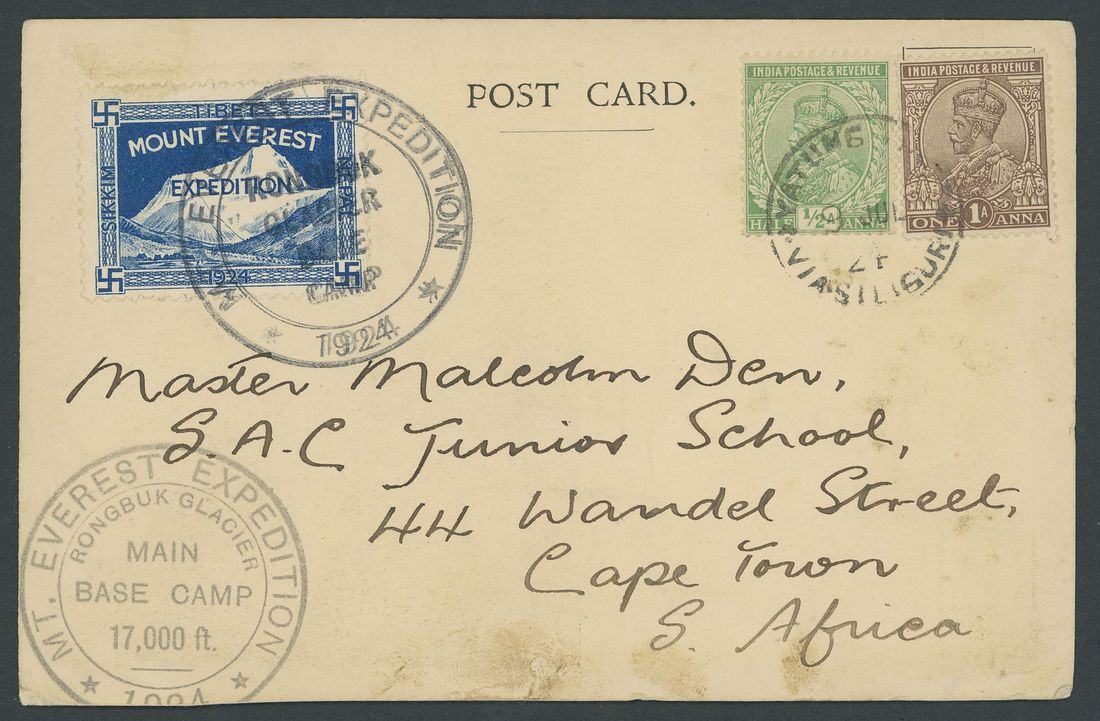 POST CARD.
TIBET
MOUNT EVEREST
EXPEDITION
SIKKIM
NEPAL
1924
MT. EVEREST EXPEDITION
RONGBUK
GLACIER
BASE
CAMP
1924
INDIA POSTAGE & REVENUE
HALF ½A ANNA
INDIA POSTAGE & REVENUE
ONE 1A ANNA
YATUNG
JUL
VIA SILIGURI
Master Malcolm Den,
S.A.C Junior School,
44 Wandel Street,
Cape Town
S. Africa
MT. EVEREST EXPEDITION
RONGBUK GLACIER
MAIN
BASE CAMP
17,000 ft.
1924